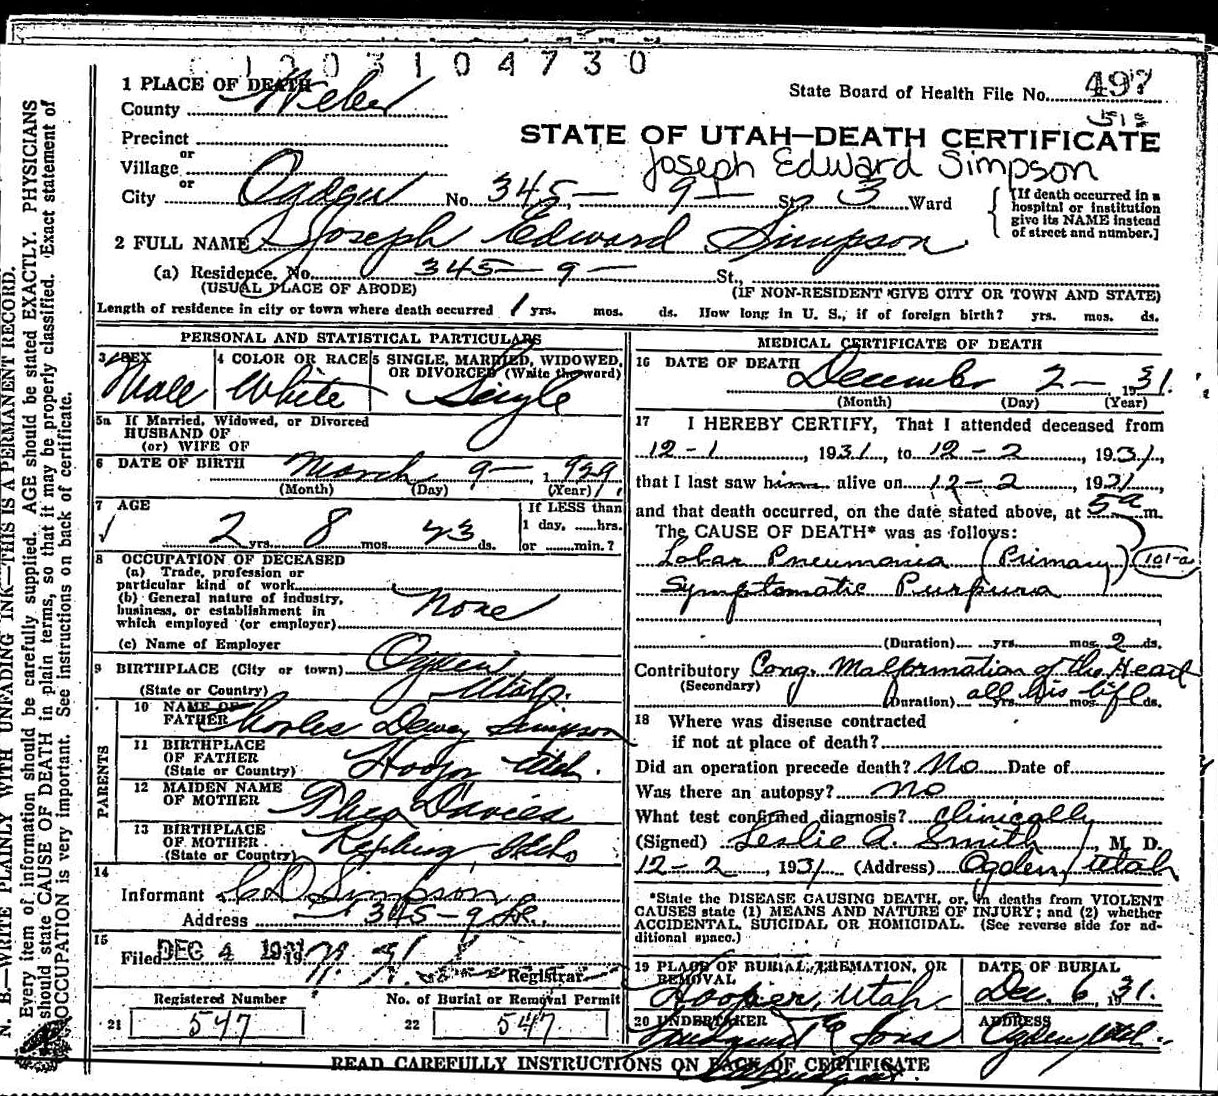 1 2 0 3 1 0 4 7 3 0
1 PLACE OF DEATH
County Weber
State Board of Health File No. 497
Precinct
or
Village
or
City Ogden No. 345 — 9 — St. 3 Ward
STATE OF UTAH—DEATH CERTIFICATE
Joseph Edward Simpson
[If death occurred in a
hospital or institution
give its NAME instead
of street and number.]
2 FULL NAME Joseph Edward Simpson
(a) Residence, No. 345 — 9 — St.,
(USUAL PLACE OF ABODE) (IF NON-RESIDENT GIVE CITY OR TOWN AND STATE)
Length of residence in city or town where death occurred 1 yrs. mos. ds. How long in U. S., if of foreign birth? yrs. mos. ds.
PERSONAL AND STATISTICAL PARTICULARS
3 SEX Male
4 COLOR OR RACE White
5 SINGLE, MARRIED, WIDOWED,
OR DIVORCED (Write the word) Single
5a If Married, Widowed, or Divorced
HUSBAND OF
(or) WIFE OF
6 DATE OF BIRTH March 9 — 1929
(Month) (Day) (Year)
7 AGE
2 yrs. 8 mos. 23 ds.
If LESS than
1 day, ......hrs.
or ......min.?
8 OCCUPATION OF DECEASED
(a) Trade, profession or
particular kind of work
(b) General nature of industry,
business, or establishment in
which employed (or employer) None
(c) Name of Employer
9 BIRTHPLACE (City or town) Ogden
(State or Country) Utah.
PARENTS
10 NAME OF
FATHER Charles Dewey Simpson
11 BIRTHPLACE
OF FATHER
(State or Country) Hooper Utah.
12 MAIDEN NAME
OF MOTHER Davies
13 BIRTHPLACE
OF MOTHER
(State or Country) Idaho
14
Informant C D Simpson
Address 345 — 9 St.
15
Filed DEC 4 1931
Registrar
Registered Number
21 547
No. of Burial or Removal Permit
22 547
MEDICAL CERTIFICATE OF DEATH
16 DATE OF DEATH December 2 — 1931.
(Month) (Day) (Year)
17 I HEREBY CERTIFY, That I attended deceased from
12 - 1, 1931, to 12 - 2, 1931,
that I last saw him alive on 12 - 2, 1931,
and that death occurred, on the date stated above, at 5 a m.
The CAUSE OF DEATH* was as follows:
Lobar Pneumonia (Primary) 101-a
Symptomatic Purpura
(Duration) yrs. mos. 2 ds.
Contributory Cong. Malformation of the Heart
(Secondary)
(Duration) all his life yrs. mos. ds.
18 Where was disease contracted
if not at place of death?
Did an operation precede death? No Date of
Was there an autopsy? No
What test confirmed diagnosis? Clinically
(Signed) Leslie A. Smith, M. D.
12 - 2, 1931 (Address) Ogden, Utah
*State the DISEASE CAUSING DEATH, or, in deaths from VIOLENT
CAUSES state (1) MEANS AND NATURE OF INJURY; and (2) whether
ACCIDENTAL, SUICIDAL OR HOMICIDAL. (See reverse side for ad-
ditional space.)
19 PLACE OF BURIAL, CREMATION, OR
REMOVAL Hooper, Utah
DATE OF BURIAL
Dec. 6, 1931.
20 UNDERTAKER & Sons
ADDRESS Ogden Utah
READ CAREFULLY INSTRUCTIONS ON BACK OF CERTIFICATE
N. B.—WRITE PLAINLY WITH UNFADING INK—THIS IS A PERMANENT RECORD.
Every item of information should be carefully supplied. AGE should be stated EXACTLY. PHYSICIANS
should state CAUSE OF DEATH in plain terms, so that it may be properly classified. Exact statement of
OCCUPATION is very important. See instructions on back of certificate.